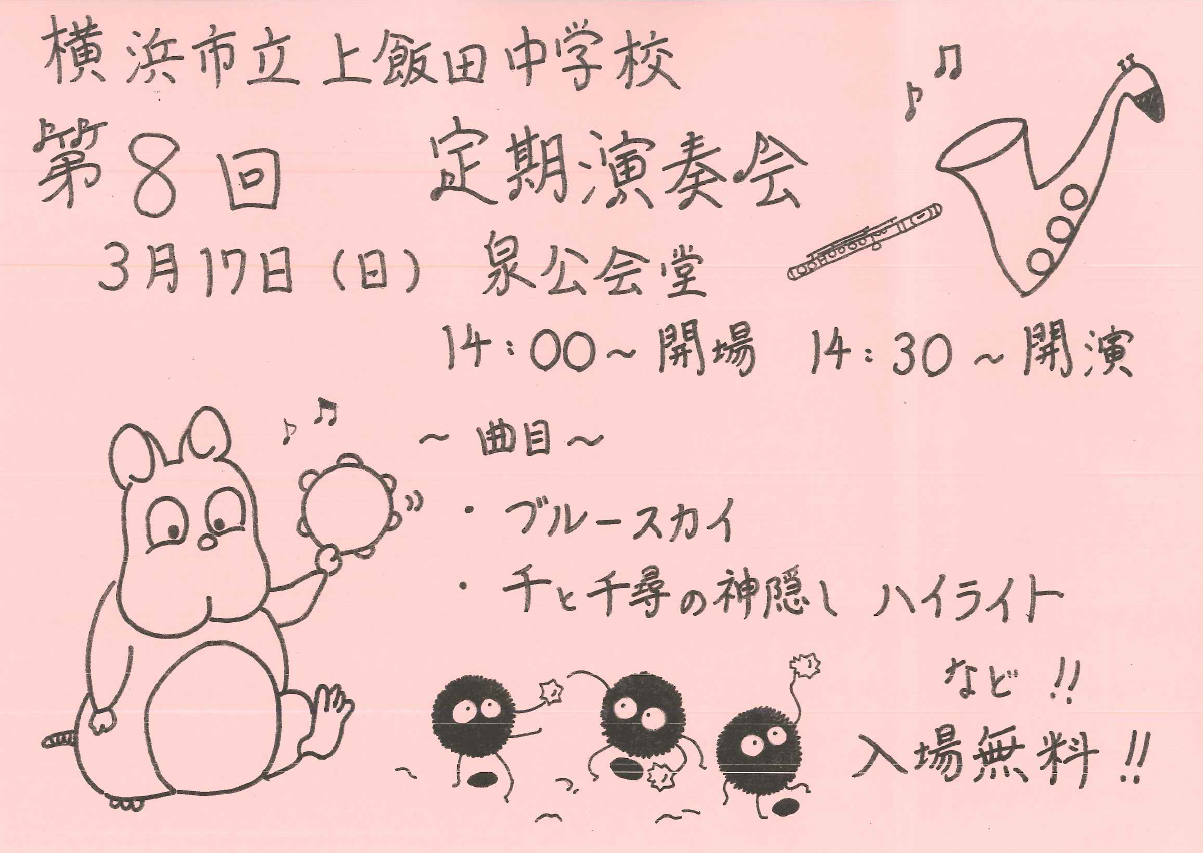 横浜市立上飯田中学校
第8回 定期演奏会
3月17日(日) 泉公会堂
14:00~開場 14:30~開演
~曲目~
・ブルースカイ
・千と千尋の神隠し ハイライト
など!!
入場無料!!